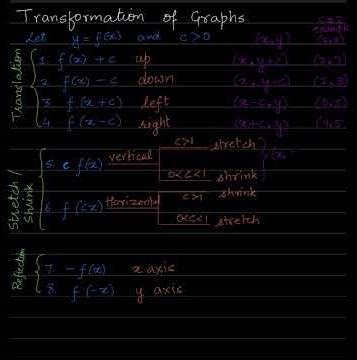 Transformation of Graphs
Let y = f(x) and c > 0 (x, y)
c = 2
example
Translation
1. f(x) + c up (x, y+c) (2, 7)
2. f(x) - c down (x, y-c) (2, 3)
3 f(x+c) left (x-c, y) (0, 5)
4. f(x-c) right (x+c, y) (4, 5
Stretch / Shrink
5. c f(x) vertical c>1 stretch
0<c<1 shrink
6. f(cx) Horizontal c>1 shrink
0<c<1 stretch
Reflection
7. -f(x) x axis
8. f(-x) y axis